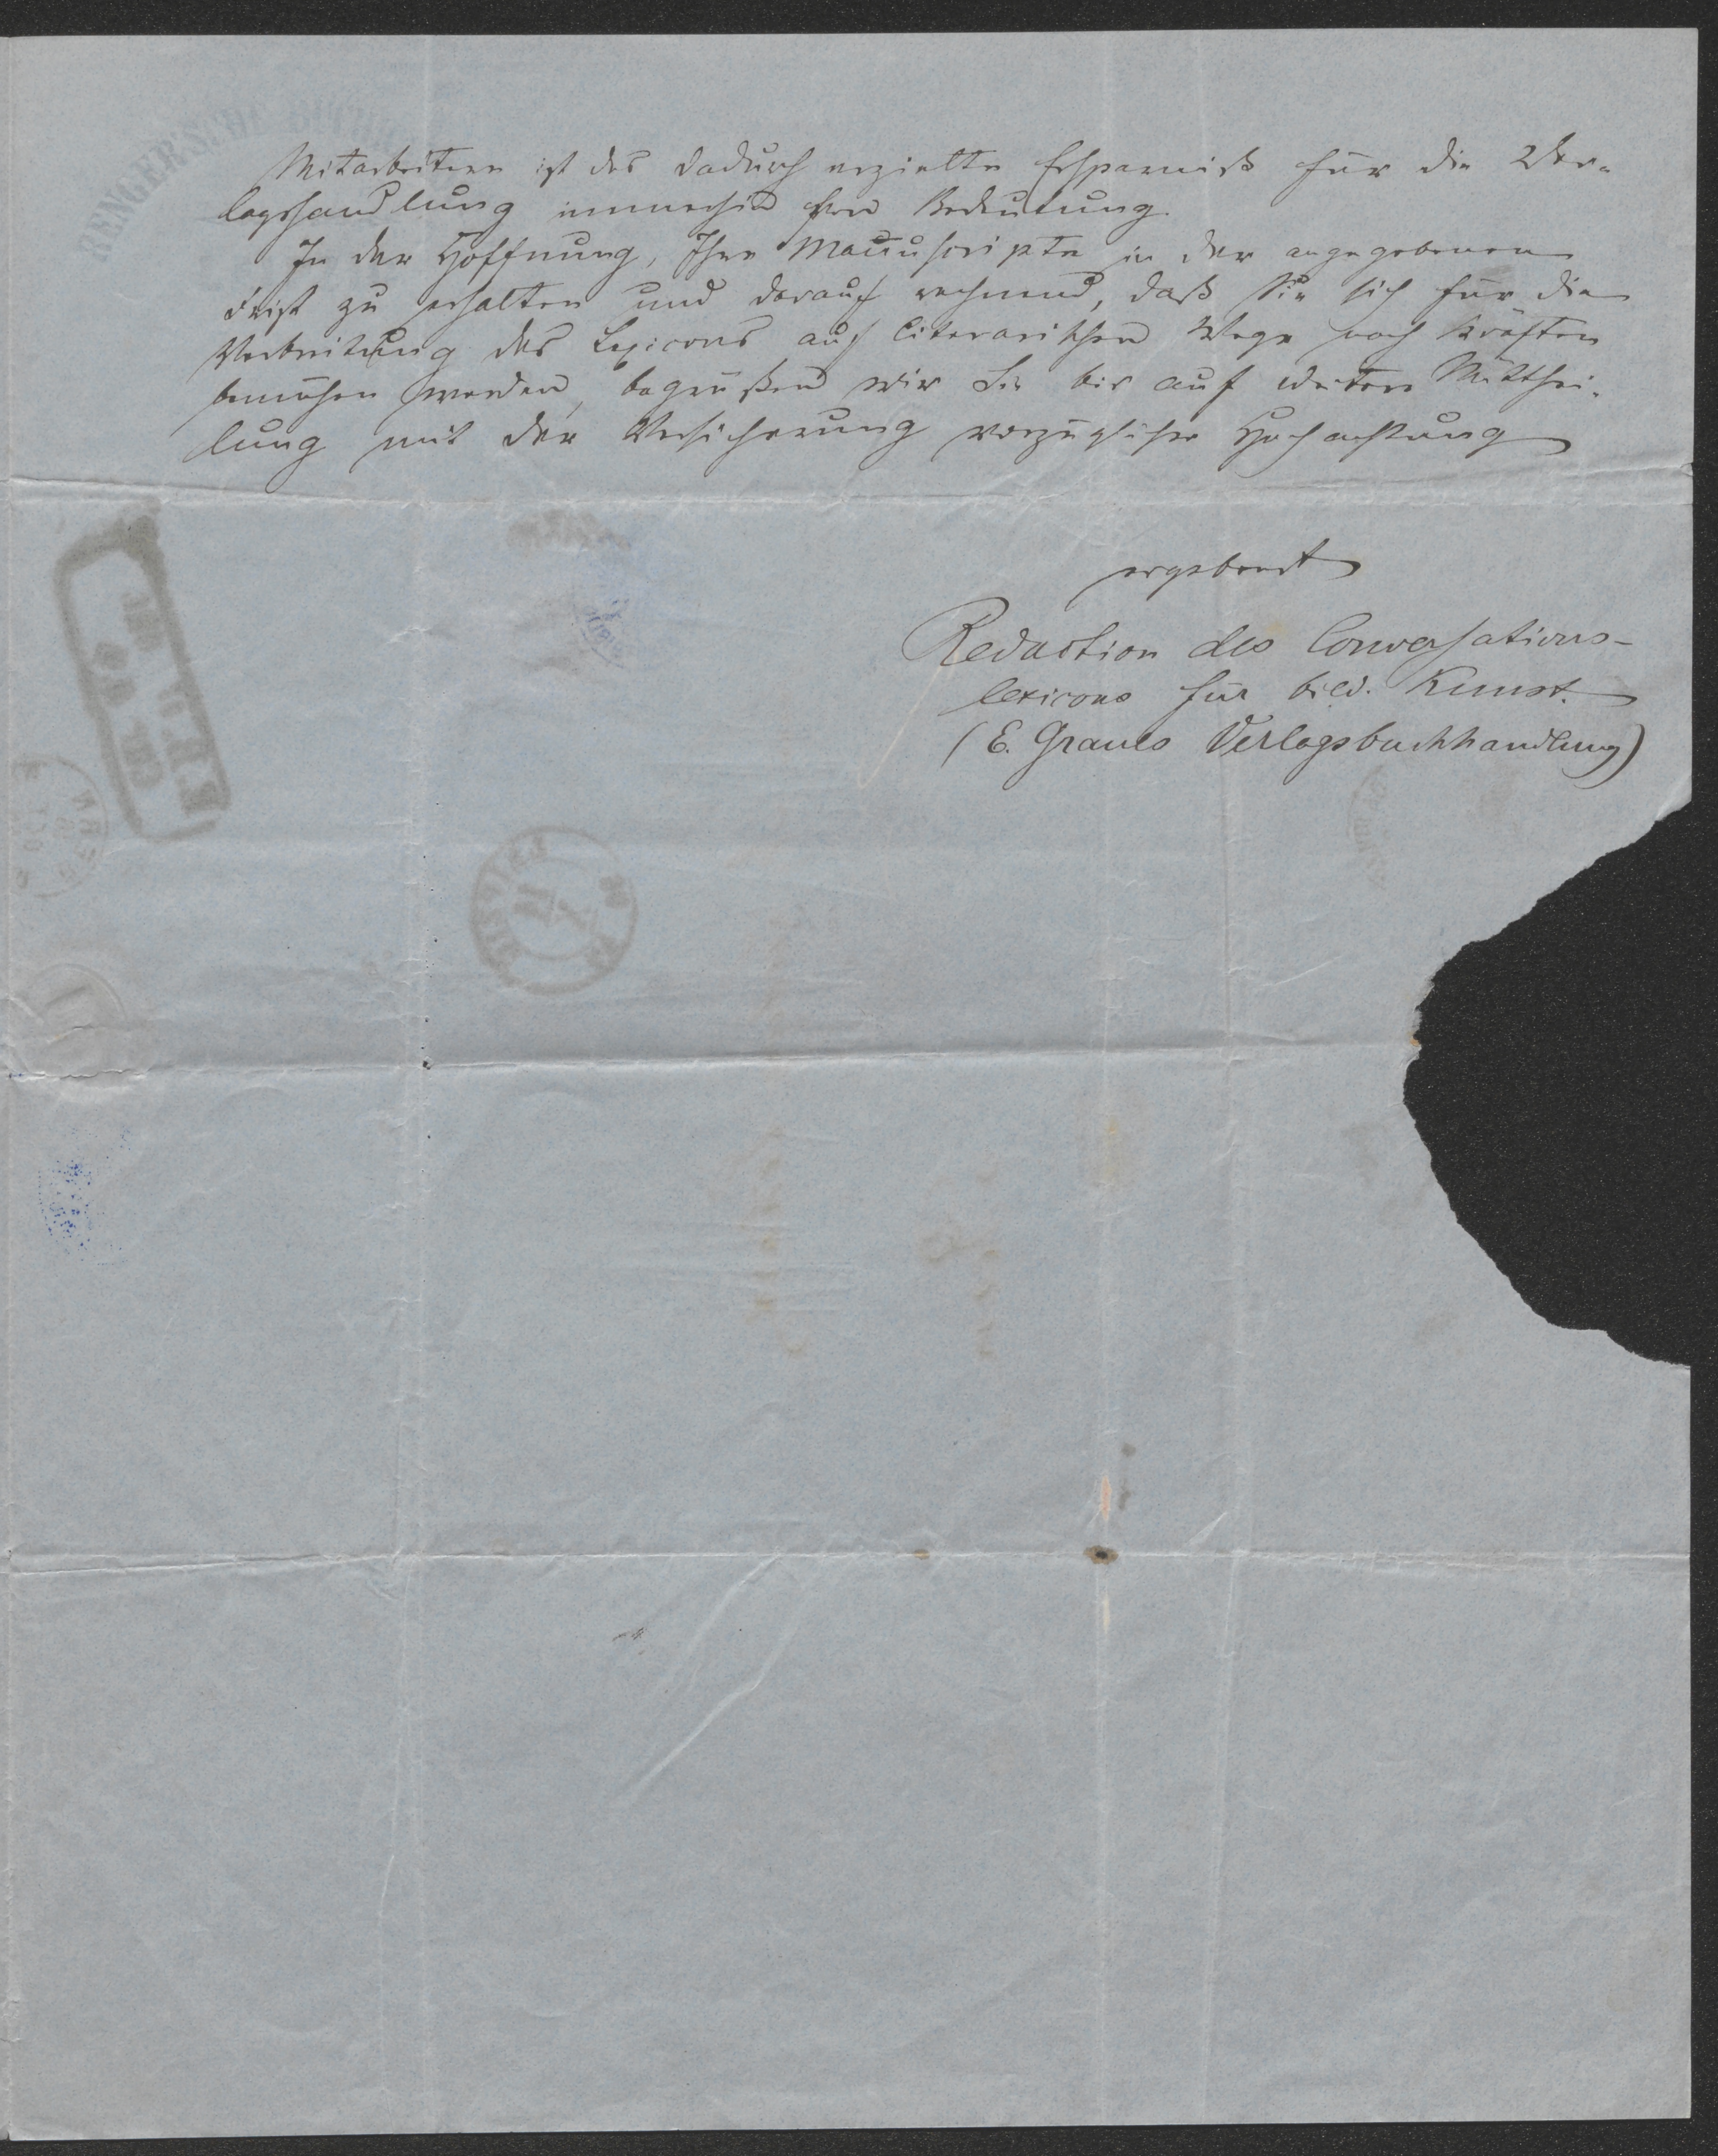 RENGER'SCHE BUCHH
Mitarbeitern ist das dadurch erzielte Ersparniß für die Ver-
lagshandlung immerhin von Bedeutung.
In der Hoffnung, Ihre Manuscripte in der angegebenen
Frist zu erhalten und darauf rechnend, daß Sie sich für die
Verbreitung des Lexicons auf literarischem Wege nach Kräften
bemühen werden, begrüßen wir Sie bis auf weitere Mitthei-
lung mit der Versicherung vorzüglicher Hochachtung
ergebenst
Redaction des Conversations-
lexicons für bild. Kunst.
(E. Graules Verlagsbuchhandlung)